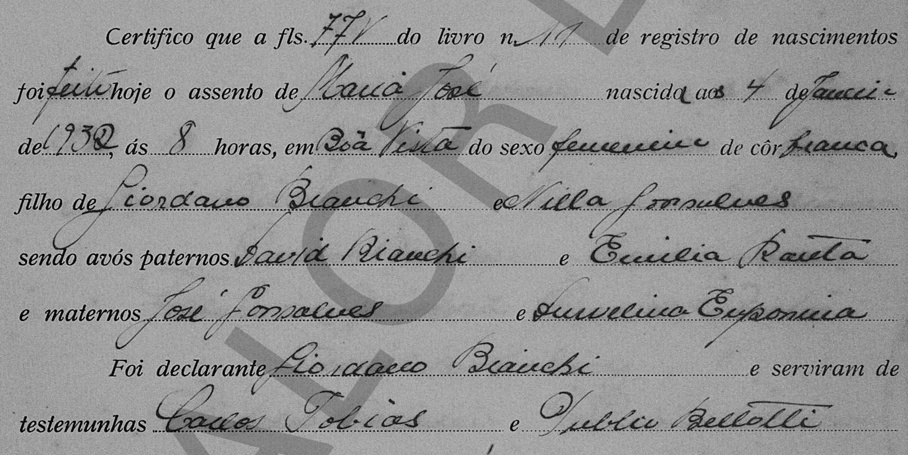 Certifico que a fls. 77V do livro n. 11 de registro de nascimentos
foi feito hoje o assento de Maria José nascida aos 4 de Janeiro
de 1932, ás 8 horas, em Bôa Vista do sexo femenino de côr branca,
filho de Giordano Bianchi e Nilla Gonsalves
sendo avós paternos David Bianchi e Emilia Ranta
e maternos José Gonsalves e Euponina
Foi declarante Giordano Bianchi e serviram de
testemunhas Carlos Tobias e Publio Bellotti
VALOR